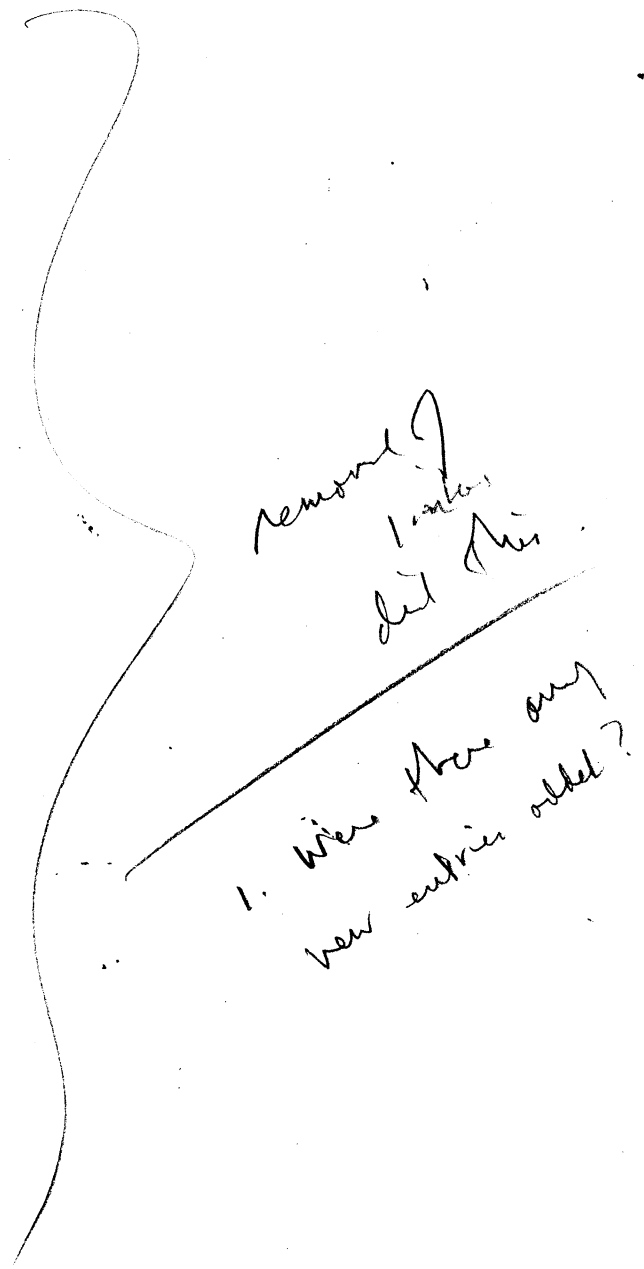 removed?
did this.
1. Were there any
new entries added?